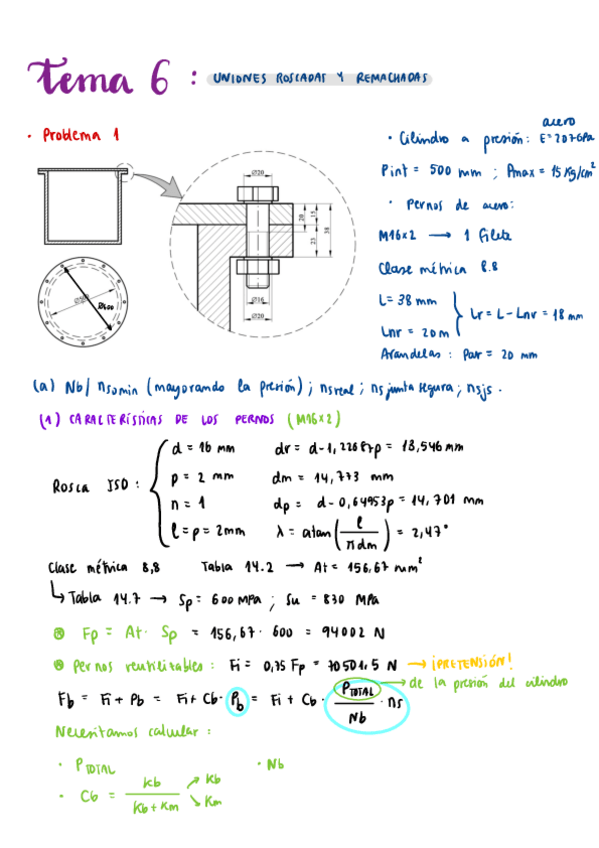 Tema 6 : UNIONES ROSCADAS Y REMACHADAS
· Problema 1
· Cilindro a presión: acero E = 207 GPa
Pint = 500 mm ; Pmax = 15 Kg/cm²
· Pernos de acero:
M16x2 → 1 filete
Clase métrica 8.8
L = 38 mm
Lnr = 20 m
Lr = L - Lnr = 18 mm
Arandelas : Dar = 20 mm
Ø20
20
15
23
38
Ø16
Ø20
Ø600
(a) Nb / nsomin (mayorando la presión) ; nsreal ; nsjunta segura ; nsjs.
(1) CARACTERÍSTICAS DE LOS PERNOS (M16x2)
Rosca ISO :
d = 16 mm dr = d - 1,22687p = 13,546 mm
p = 2 mm dm = 14,773 mm
n = 1 dp = d - 0,64953p = 14,701 mm
l = p = 2mm λ = atan(l / π dm) = 2,47°
Clase métrica 8,8 Tabla 14.2 → At = 156,67 mm²
↳ Tabla 14.7 → Sp = 600 MPa ; Su = 830 MPa
Fp = At · Sp = 156,67 · 600 = 94002 N
Pernos reutilizables : Fi = 0,75 Fp = 70501,5 N → ¡PRETENSIÓN!
Fb = Fi + Pb = Fi + Cb · Pb = Fi + Cb · PTOTAL / Nb · ns
→ de la presión del cilindro
Necesitamos calcular :
· PTOTAL · Nb
· Cb = Kb / Kb + Km → Kb → Km